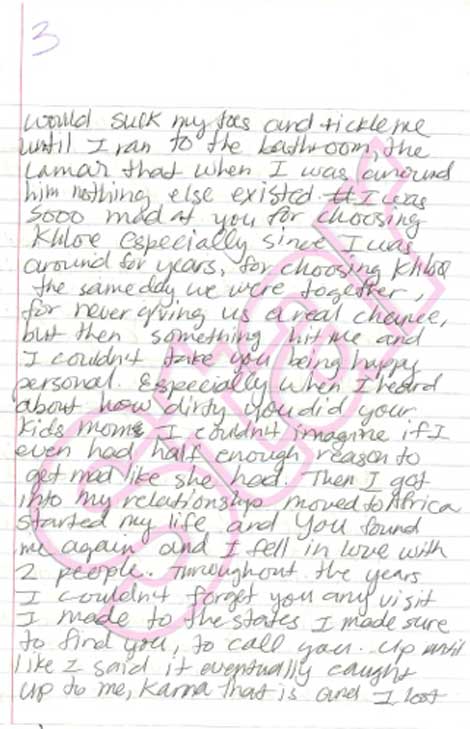 3
would suck my toes and tickle me
until I ran to the bathroom, the
Lamar that when I was around
him nothing else existed. I was
sooo mad at you for choosing
Khloe especially since I was
around for years, for choosing Khloe
the same day we were together,
for never giving us a real chance,
but then something hit me and
I couldn't take you being happy
personal. Especially when I heard
about how dirty you did your
kids mom I couldn't imagine if I
even had half enough reason to
get mad like she had. Then I got
into my relationship moved to Africa
started my life and you found
me again and I fell in love with
2 people. Throughout the years
I couldn't forget you any visit
I made to the states I made sure
to find you, to call you. Up until
like I said it eventually caught
up to me, Karma that is and I lost
Star